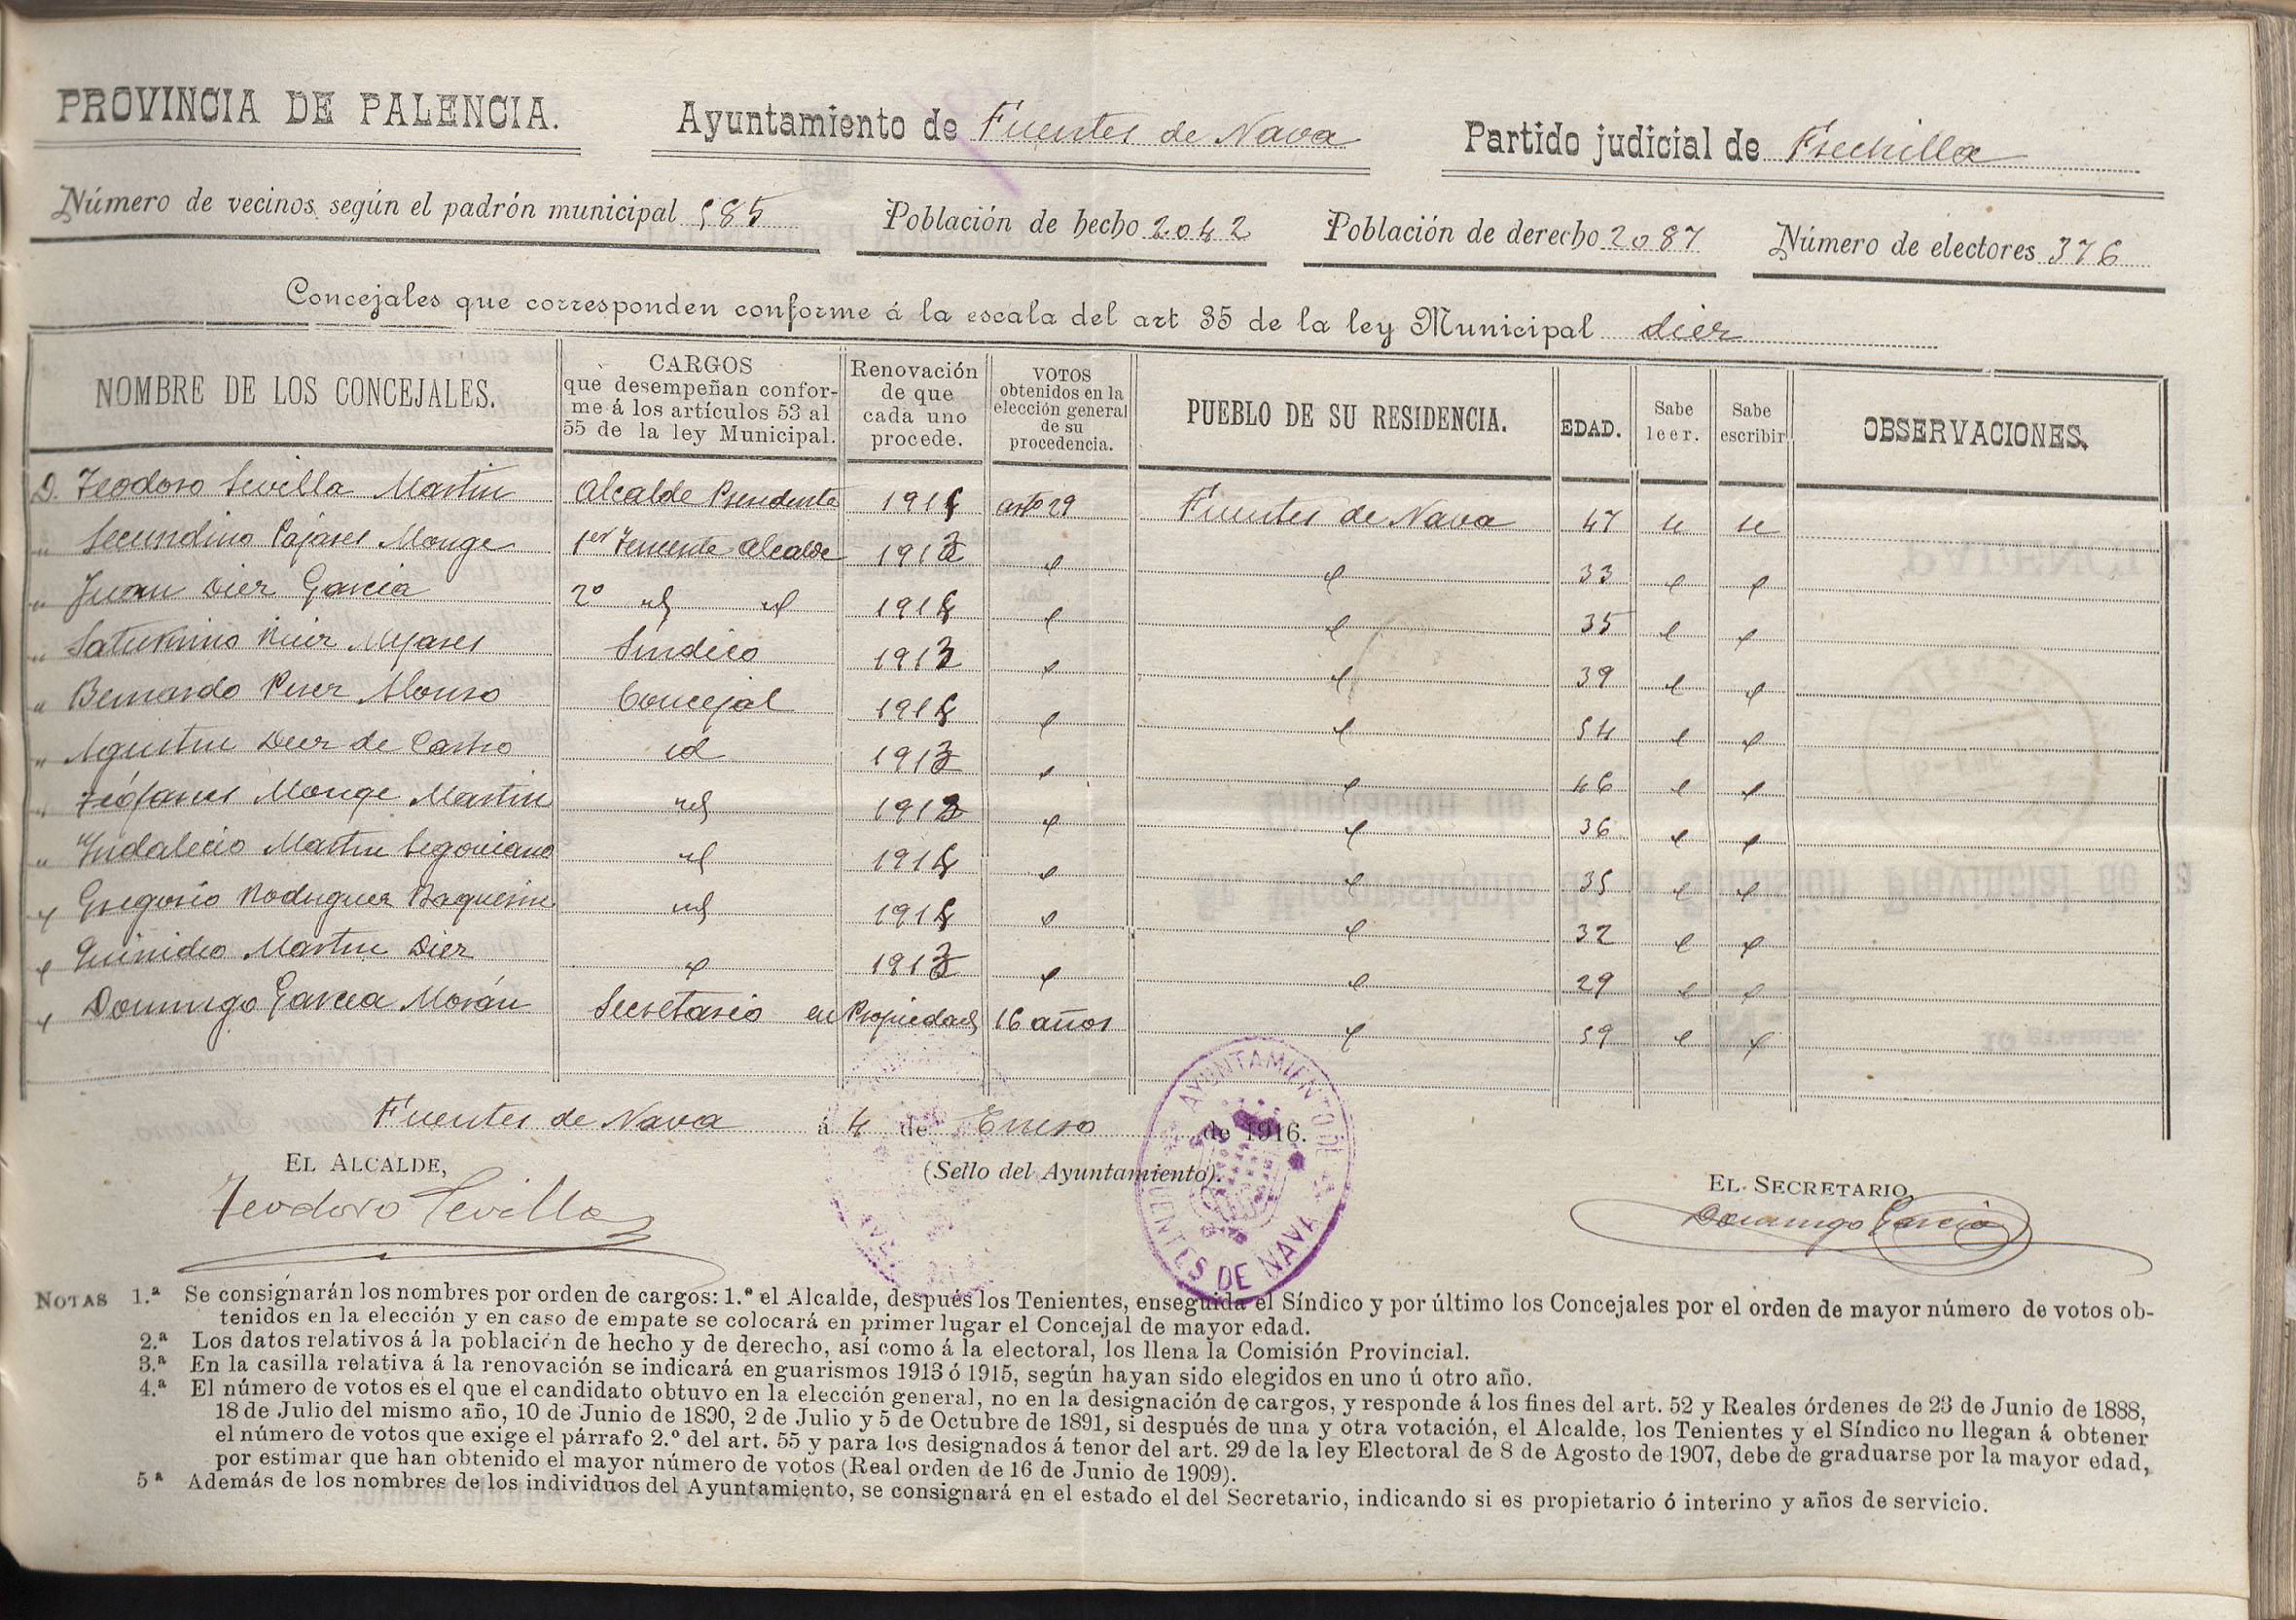 PROVINCIA DE PALENCIA. Ayuntamiento de Fuentes de Nava Partido judicial de Frechilla
Número de vecinos según el padrón municipal 585 Población de hecho 2042 Población de derecho 2087 Número de electores 376
Concejales que corresponden conforme á la escala del art 35 de la ley Municipal diez
NOMBRE DE LOS CONCEJALES.
CARGOS
que desempeñan confor-
me á los artículos 53 al
55 de la ley Municipal.
Renovación
de que
cada uno
procede.
VOTOS
obtenidos en la
elección general
de su
procedencia.
PUEBLO DE SU RESIDENCIA.
EDAD.
Sabe
leer.
Sabe
escribir
OBSERVACIONES.
D. Teodoro Sevilla Martin Alcalde Presidente 1915 artº 29 Fuentes de Nava 47 si si
" Secundino Pajares Monge 1er Teniente Alcalde 1913 " " 33 " "
" Juan Diez Garcia 2º id id 1915 " " 35 " "
" Saturnino Ruiz Mijares Sindico 1913 " " 39 " "
" Bernardo Perez Alonso Concejal 1915 " " 54 " "
" Agustin Diez de Castro id 1913 " " 46 " "
" Teófanes Monge Martin id 1913 " " 36 " "
" Indalecio Martin Segoviano id 1915 " " 35 " "
" Gregorio Rodriguez Baquerin id 1915 " " 32 " "
" Martin Diez " 1913 " " 29 " "
" Domingo Garcia Morán Secretario en Propiedad 16 años " 59 " "
Fuentes de Nava á 4 de Enero de 1916.
EL ALCALDE,
(Sello del Ayuntamiento).
EL SECRETARIO,
Teodoro Sevilla
Domingo Garcia
AYUNTAMIENTO DE FUENTES DE NAVA
NOTAS 1.ª Se consignarán los nombres por orden de cargos: 1.º el Alcalde, después los Tenientes, enseguida el Síndico y por último los Concejales por el orden de mayor número de votos ob-
tenidos en la elección y en caso de empate se colocará en primer lugar el Concejal de mayor edad.
2.ª Los datos relativos á la población de hecho y de derecho, así como á la electoral, los llena la Comisión Provincial.
3.ª En la casilla relativa á la renovación se indicará en guarismos 1913 ó 1915, según hayan sido elegidos en uno ú otro año.
4.ª El número de votos es el que el candidato obtuvo en la elección general, no en la designación de cargos, y responde á los fines del art. 52 y Reales órdenes de 23 de Junio de 1888,
18 de Julio del mismo año, 10 de Junio de 1890, 2 de Julio y 5 de Octubre de 1891, si después de una y otra votación, el Alcalde, los Tenientes y el Síndico no llegan á obtener
el número de votos que exige el párrafo 2.º del art. 55 y para los designados á tenor del art. 29 de la ley Electoral de 8 de Agosto de 1907, debe de graduarse por la mayor edad,
por estimar que han obtenido el mayor número de votos (Real orden de 16 de Junio de 1909).
5ª Además de los nombres de los individuos del Ayuntamiento, se consignará en el estado el del Secretario, indicando si es propietario ó interino y años de servicio.